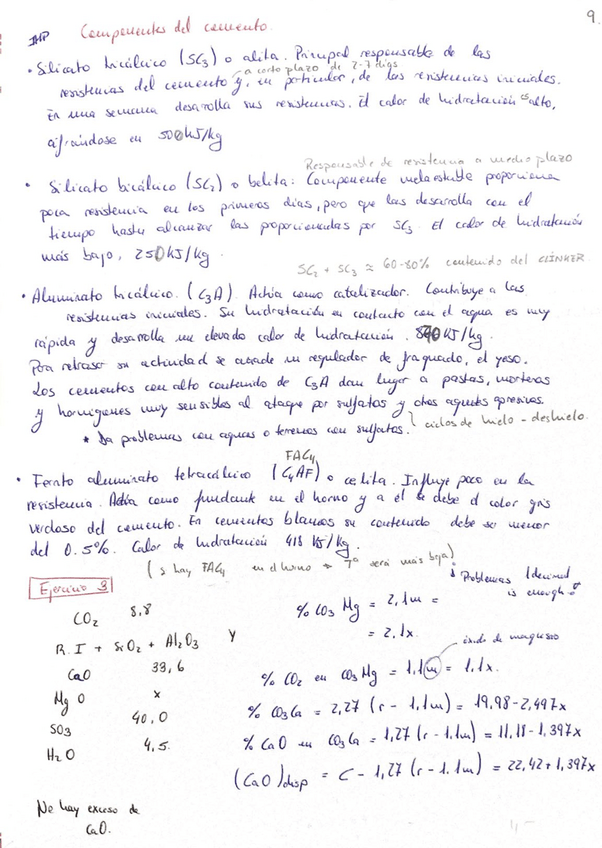 9
IHP Componentes del cemento
• Silicato tricálcico (SC3) o alita. Principal responsable de las
a corto plazo de 2-7 días
resistencias del cemento y, en particular, de las resistencias iniciales.
En una semana desarrolla sus resistencias. El calor de hidratación es alto,
cifrándose en 500kJ/kg
Responsable de resistencia a medio plazo
• Silicato bicálcico (SC2) o belita: Componente metaestable proporciona
poca resistencia en los primeros días, pero que las desarrolla con el
tiempo hasta alcanzar las proporcionadas por SC3. El calor de hidratación
más bajo, 250kJ/kg.
SC2 + SC3 ≈ 60-80% contenido del CLÍNKER.
• Aluminato tricálcico. (C3A). Actúa como catalizador. Contribuye a las
resistencias iniciales. Su hidratación en contacto con el agua es muy
rápida y desarrolla un elevado calor de hidratación. kJ/kg.
Para retrasar su actividad se añade un regulador de fraguado, el yeso.
Los cementos con alto contenido de C3A dan lugar a pastas, morteros
y hormigones muy sensibles al ataque por sulfatos y otros agentes agresivos.
* Da problemas con aguas o terrenos con sulfatos. ciclos de hielo - deshielo.
FAC4
• Ferrito aluminato tetracálcico (C4AF) o celita. Influye poco en la
resistencia. Actúa como fundente en el horno y a él se debe el color gris
verdoso del cemento. En cementos blancos su contenido debe ser menor
del 0.5%. Calor de hidratación 418 kJ/kg.
(si hay FAC4 en el horno ⇒ Tº será más baja)
Ejercicio 3
↓ Problemas 1 decimal
is enough!
CO2 8,8
% CO3 Mg = 2,1m =
= 2,1x.
R.I + SiO2 + Al2O3 y
óxido de magnesio
CaO 33,6
% CO2 en CO3Mg = 1,1m = 1,1x.
Mg O x
% CO3Ca = 2,27 (r - 1,1m) = 19,98-2,497x
SO3 40,0
% CaO en CO3Ca = 1,27 (r - 1,1m) = 11,18-1,397x
H2O 4,5.
(CaO)disp = C - 1,27 (r - 1.1m) = 22,42+1,397x
No hay exceso de
CaO.